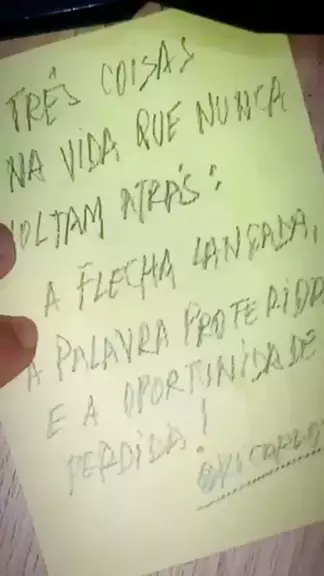 TRÊS COISAS
NA VIDA QUE NUNCA
VOLTAM ATRÁS:
A FLECHA LANÇADA,
A PALAVRA PROFERIDA
E A OPORTUNIDADE
PERDIDA!